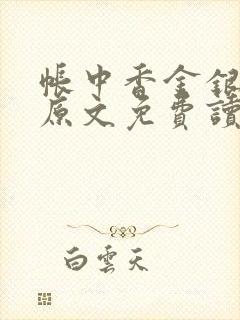 帳中香金銀
原文免費讀
白雲天